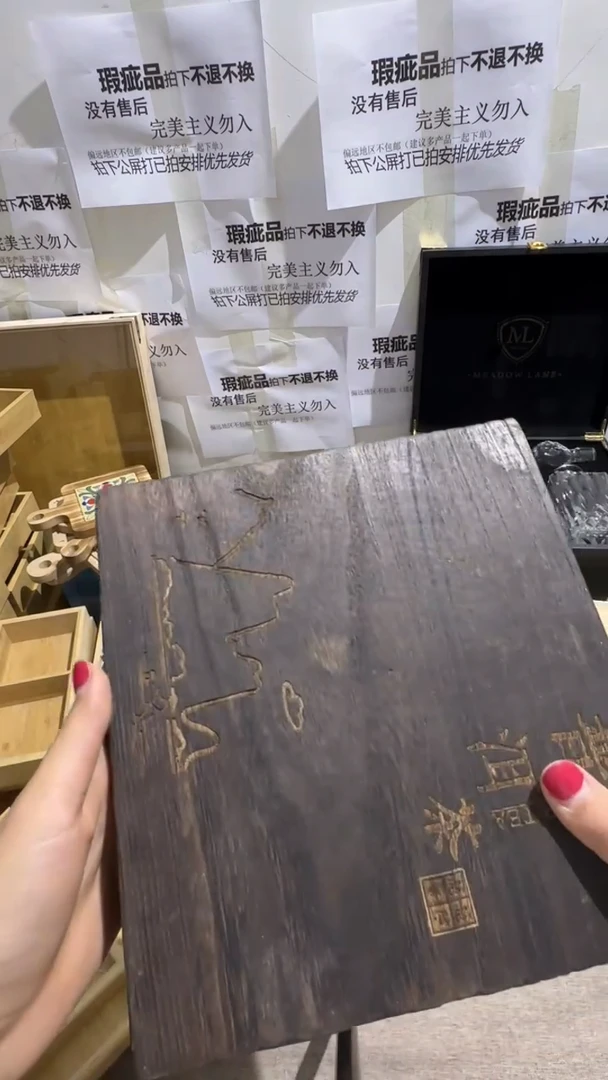 瑕疵品拍下不退不换
没有售后
完美主义勿入
偏远地区不包邮（建议多产品一起下单）
拍下公屏打已拍安排优先发货
瑕疵品拍下不退不换
没有售后
完美主义勿入
偏远地区不包邮（建议多产品一起下单）
拍下公屏打已拍安排优先发货
拍下不退不换
完美主义勿入
已拍安排优先发货
瑕疵品拍下不退不换
没有售后
完美主义勿入
偏远地区不包邮（建议多产品一起下单）
拍下公屏打已拍安排优先发货
瑕疵品拍下不
没有售后
下不退不换
义勿入
瑕疵品拍下不退不换
没有售后
完美主义勿入
瑕疵
没有售后
ML
MEADOW LAMB
普洱茶
TEA